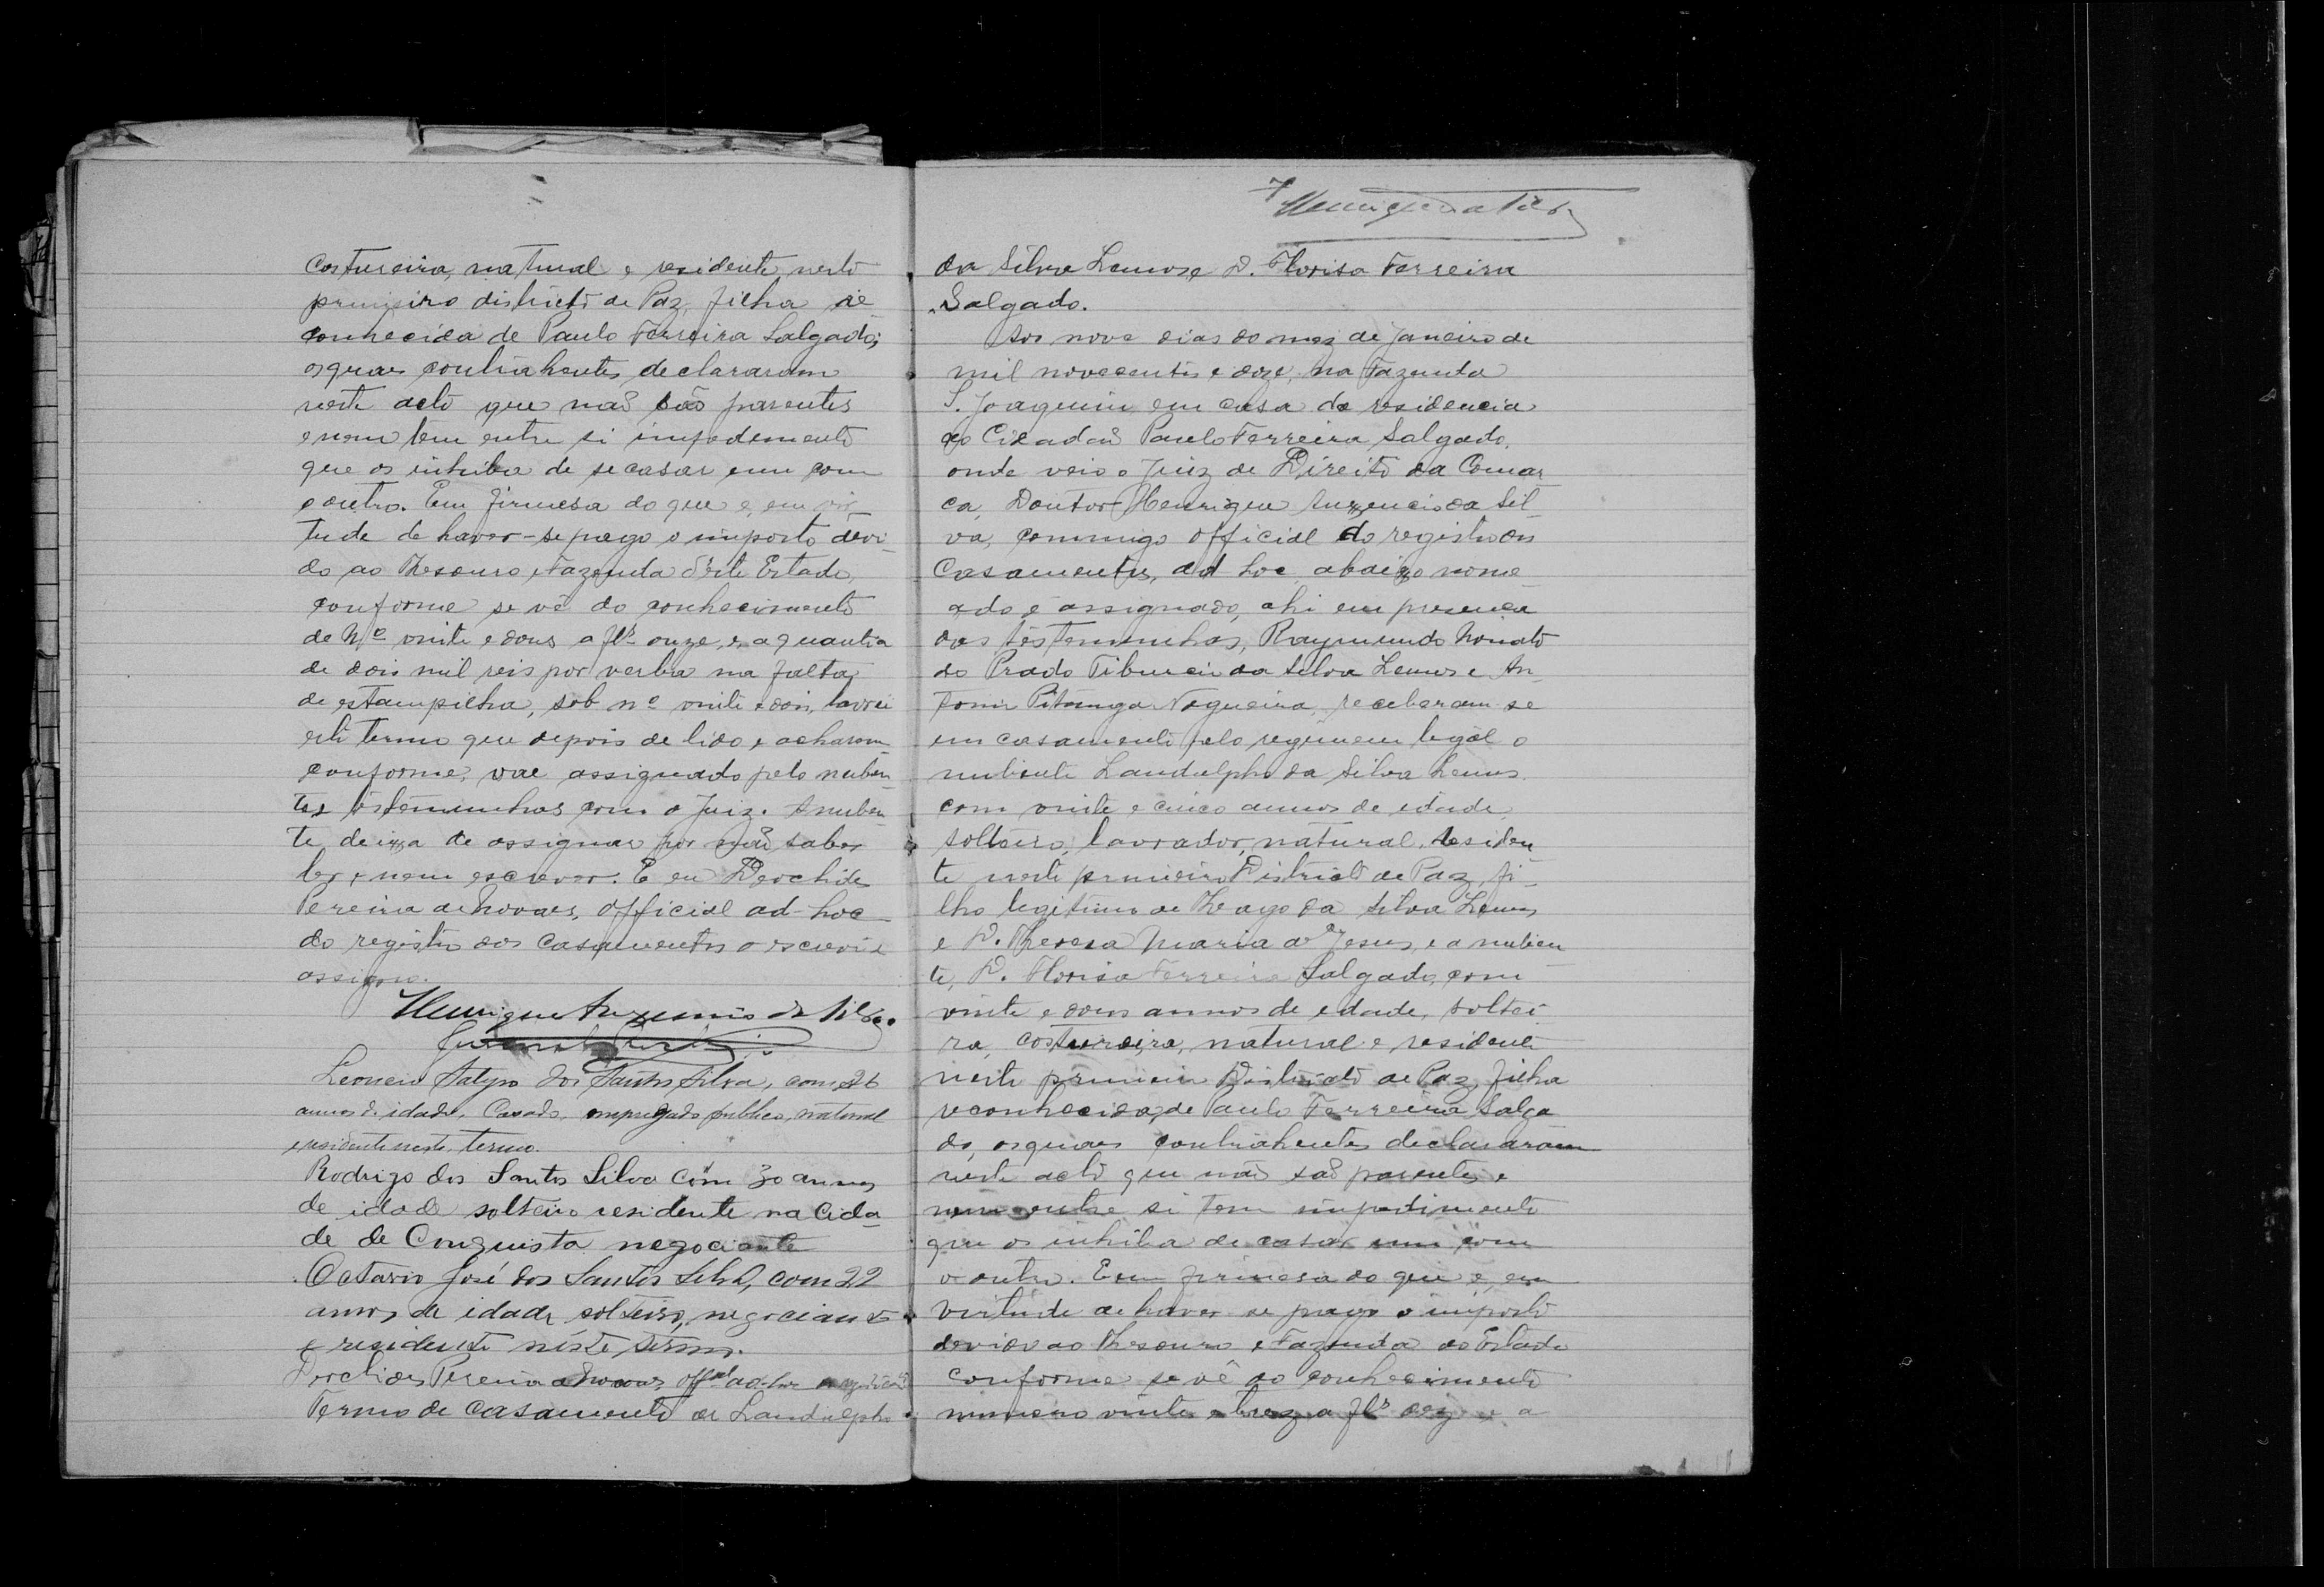 Costureira, natural e residente neste
primeiro districto de Paz, filha re-
conhecida de Paulo Ferreira Salgado;
os quaes contrahentes declararam
neste acto que não são parentes
e nem tem entre si impedimento
que os inhiba de se casar um com
o outro. Em firmesa do que e, em vir-
tude de haver-se pago o imposto devi-
do ao Thesouro e Fazenda d'este Estado,
conforme se vê do conhecimento
de Nº vinte e dous a fls onze, e, a quantia
de dois mil reis por verba na falta
de estampilha, sob nº vinte e dois, lavrei
este termo que depois de lido e acharam
conforme, vae assignado pelo nuben-
te e testemunhas com o Juiz. A nuben-
te deixa de assignar por não saber
ler e nem escrever. E eu Deoclides
Pereira de Novaes, official ad-hoc
do registro dos casamentos o escrevi e
assigno.
Henrique Auxencio da Silva.
Leoncio Satyro dos Santos Silva, com 26
annos de idade, Casado, empregado publico, natural
e residente neste termo.
Rodrigo dos Santos Silva com 30 annos
de idade solteiro residente na Cida-
de de Conquista negociante
Octavio José dos Santos Silva, com 22
annos de idade solteiro, negociante
e residente neste termo.
Deoclides Pereira de Novaes, offal ad-hoc
Termo de Casamento de Landulpho
7
da Silva Lemos e D. Florisa Ferreira
Salgado.
Aos nove dias do mez de Janeiro de
mil novecentos e doze, na Fazenda
S. Joaquim em casa da residencia
do Cidadão Paulo Ferreira Salgado,
onde veio o Juiz de Direito da Comar-
ca, Doutor Henrique Auxencio da Sil-
va, commigo official do registro dos
Casamentos, ad hoc abaixo nome-
ado e assignado, ahi em presença
das testemunhas, Raymundo Nonato
do Prado Tiburcio da Silva Lemos e An-
tonio Pitanga Nogueira, receberam-se
em casamento pelo regimem legal o
nubente Landulpho da Silva Lemos
com vinte e cinco annos de edade,
solteiro, lavrador, natural, residen-
te neste primeiro Districto de Paz, fi-
lho legitimo de Thiago da Silva Lemos
e D. Theresa Maria de Jesus, e a nuben-
te, D. Florisa Ferreira Salgado, com
vinte e dous annos de edade, soltei-
ra, costureira, natural e residente
neste primeiro Districto de Paz, filha
reconhecida de Paulo Ferreira Salga-
do, os quaes contrahentes declararam
neste acto que não são parentes e
nem entre si tem impedimento
que os inhiba de casar um com
o outro. Em firmesa do que e, em
virtude de haver se pago o imposto
devido ao Thesouro e Fazenda do Estado
conforme se vê do conhecimento
numero vinte e trez a fls dez e a